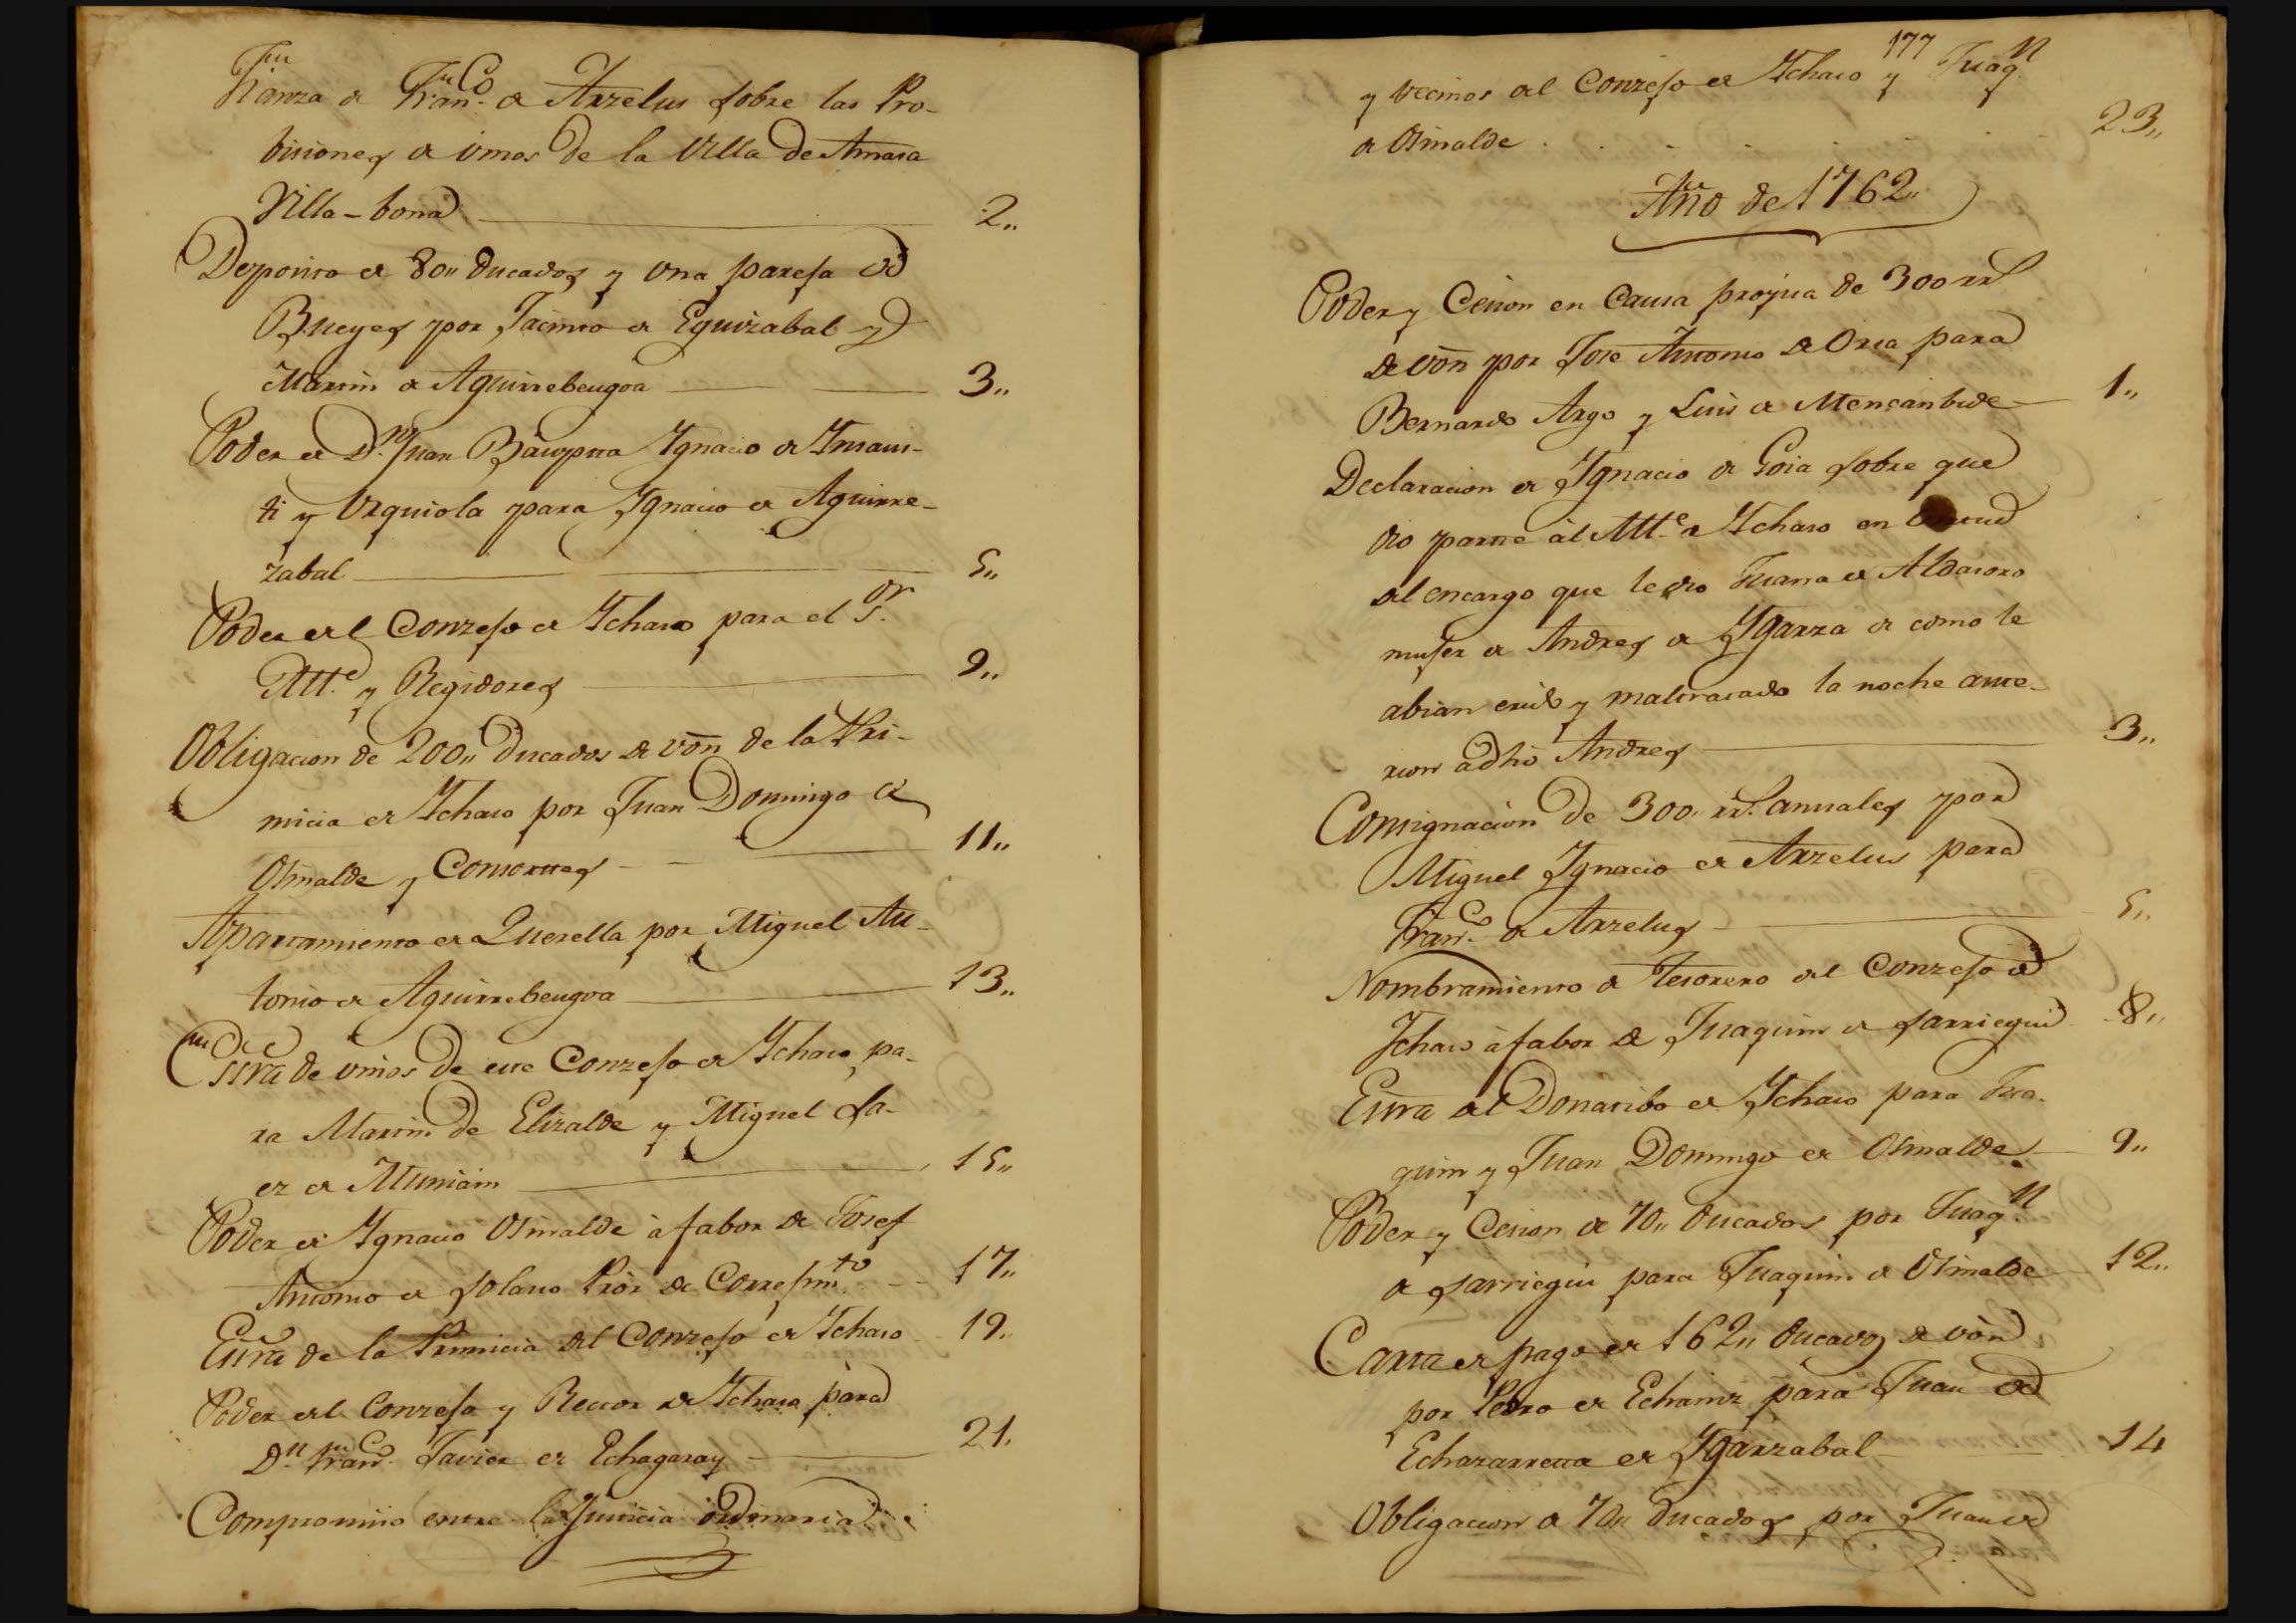 Fianza de Fran.co de Arzelus sobre las Pro-
bisiones de vinos de la Villa de Amasa
Villa-bona 2,,
Deposito de 80,, ducados y vna pareja de
Bueyes por Jacinto de Eguizabal y
Martin de Aguirrebengoa 3,,
Poder de D.n Juan Bauptta Ygnacio de Ynsaus-
ti y Vrquiola para Ygnacio de Aguirre-
zabal 5,,
Poder del Conzejo de Ychaso para el S.or
Alt.e y Regidores 9,,
Obligacion de 200,, Ducados de von de la Pri-
micia de Ychaso por Juan Domingo de
Osinalde y Consortes 11,,
Apartamiento de Querella por Miguel An-
tonio de Aguirrebengoa 13,,
Essra de vinos de este Conzejo de Ychaso pa-
ra Martin de Elizalde y Miguel Sa-
ez de Muniain 15,,
Poder de Ygnacio Osinalde à fabor de Josef
Antonio de Solano Prór de Correjim.to 17,,
Essra de la Primicia del Conzejo de Ychaso 19,
Poder del Conzejo y Rector de Ychaso para
D.n Fran.co Javier de Echagaray 21,
Compromiso entre la Justicia ordinaria
177
y vecinos del Conzejo de Ychaso y Juaq.n
de Osinalde 23,,
Año de 1762,,
Poder y Cesion en Causa propia de 300 rr.s
de von por Jose Antonio de Oria para
Bernardo Argo y Luis de Mencanbide 1,,
Declaracion de Ygnacio de Goia sobre que
dio parte àl Alt.e de Ychaso en
del encargo que le dio Juana de Aldasoro
mujer de Andres de Ygarza de como le
abian erido y maltratado la noche ante-
rior adho Andres 3,,
Consignacion de 300,, rr.s annales por
Miguel Ygnacio de Arzelus para
Fran.co de Arzelus 5,,
Nombramiento de Tesorero del Conzejo de
Ychaso à fabor de Juaquin de Sarriegui 8,,
Essra del Donatibo de Ychaso para Jua-
quin y Juan Domingo de Osinalde 9,,
Poder y Cesion de 70,, ducados por Juaq.n
de Sarriegui para Juaquin de Osinalde 12,,
Carta de pago de 162,, ducados de von
por Pedro de Echaniz para Juan de
Echazarreta de Ygarzabal 14
Obligacion de 70,, Ducados por Juan de